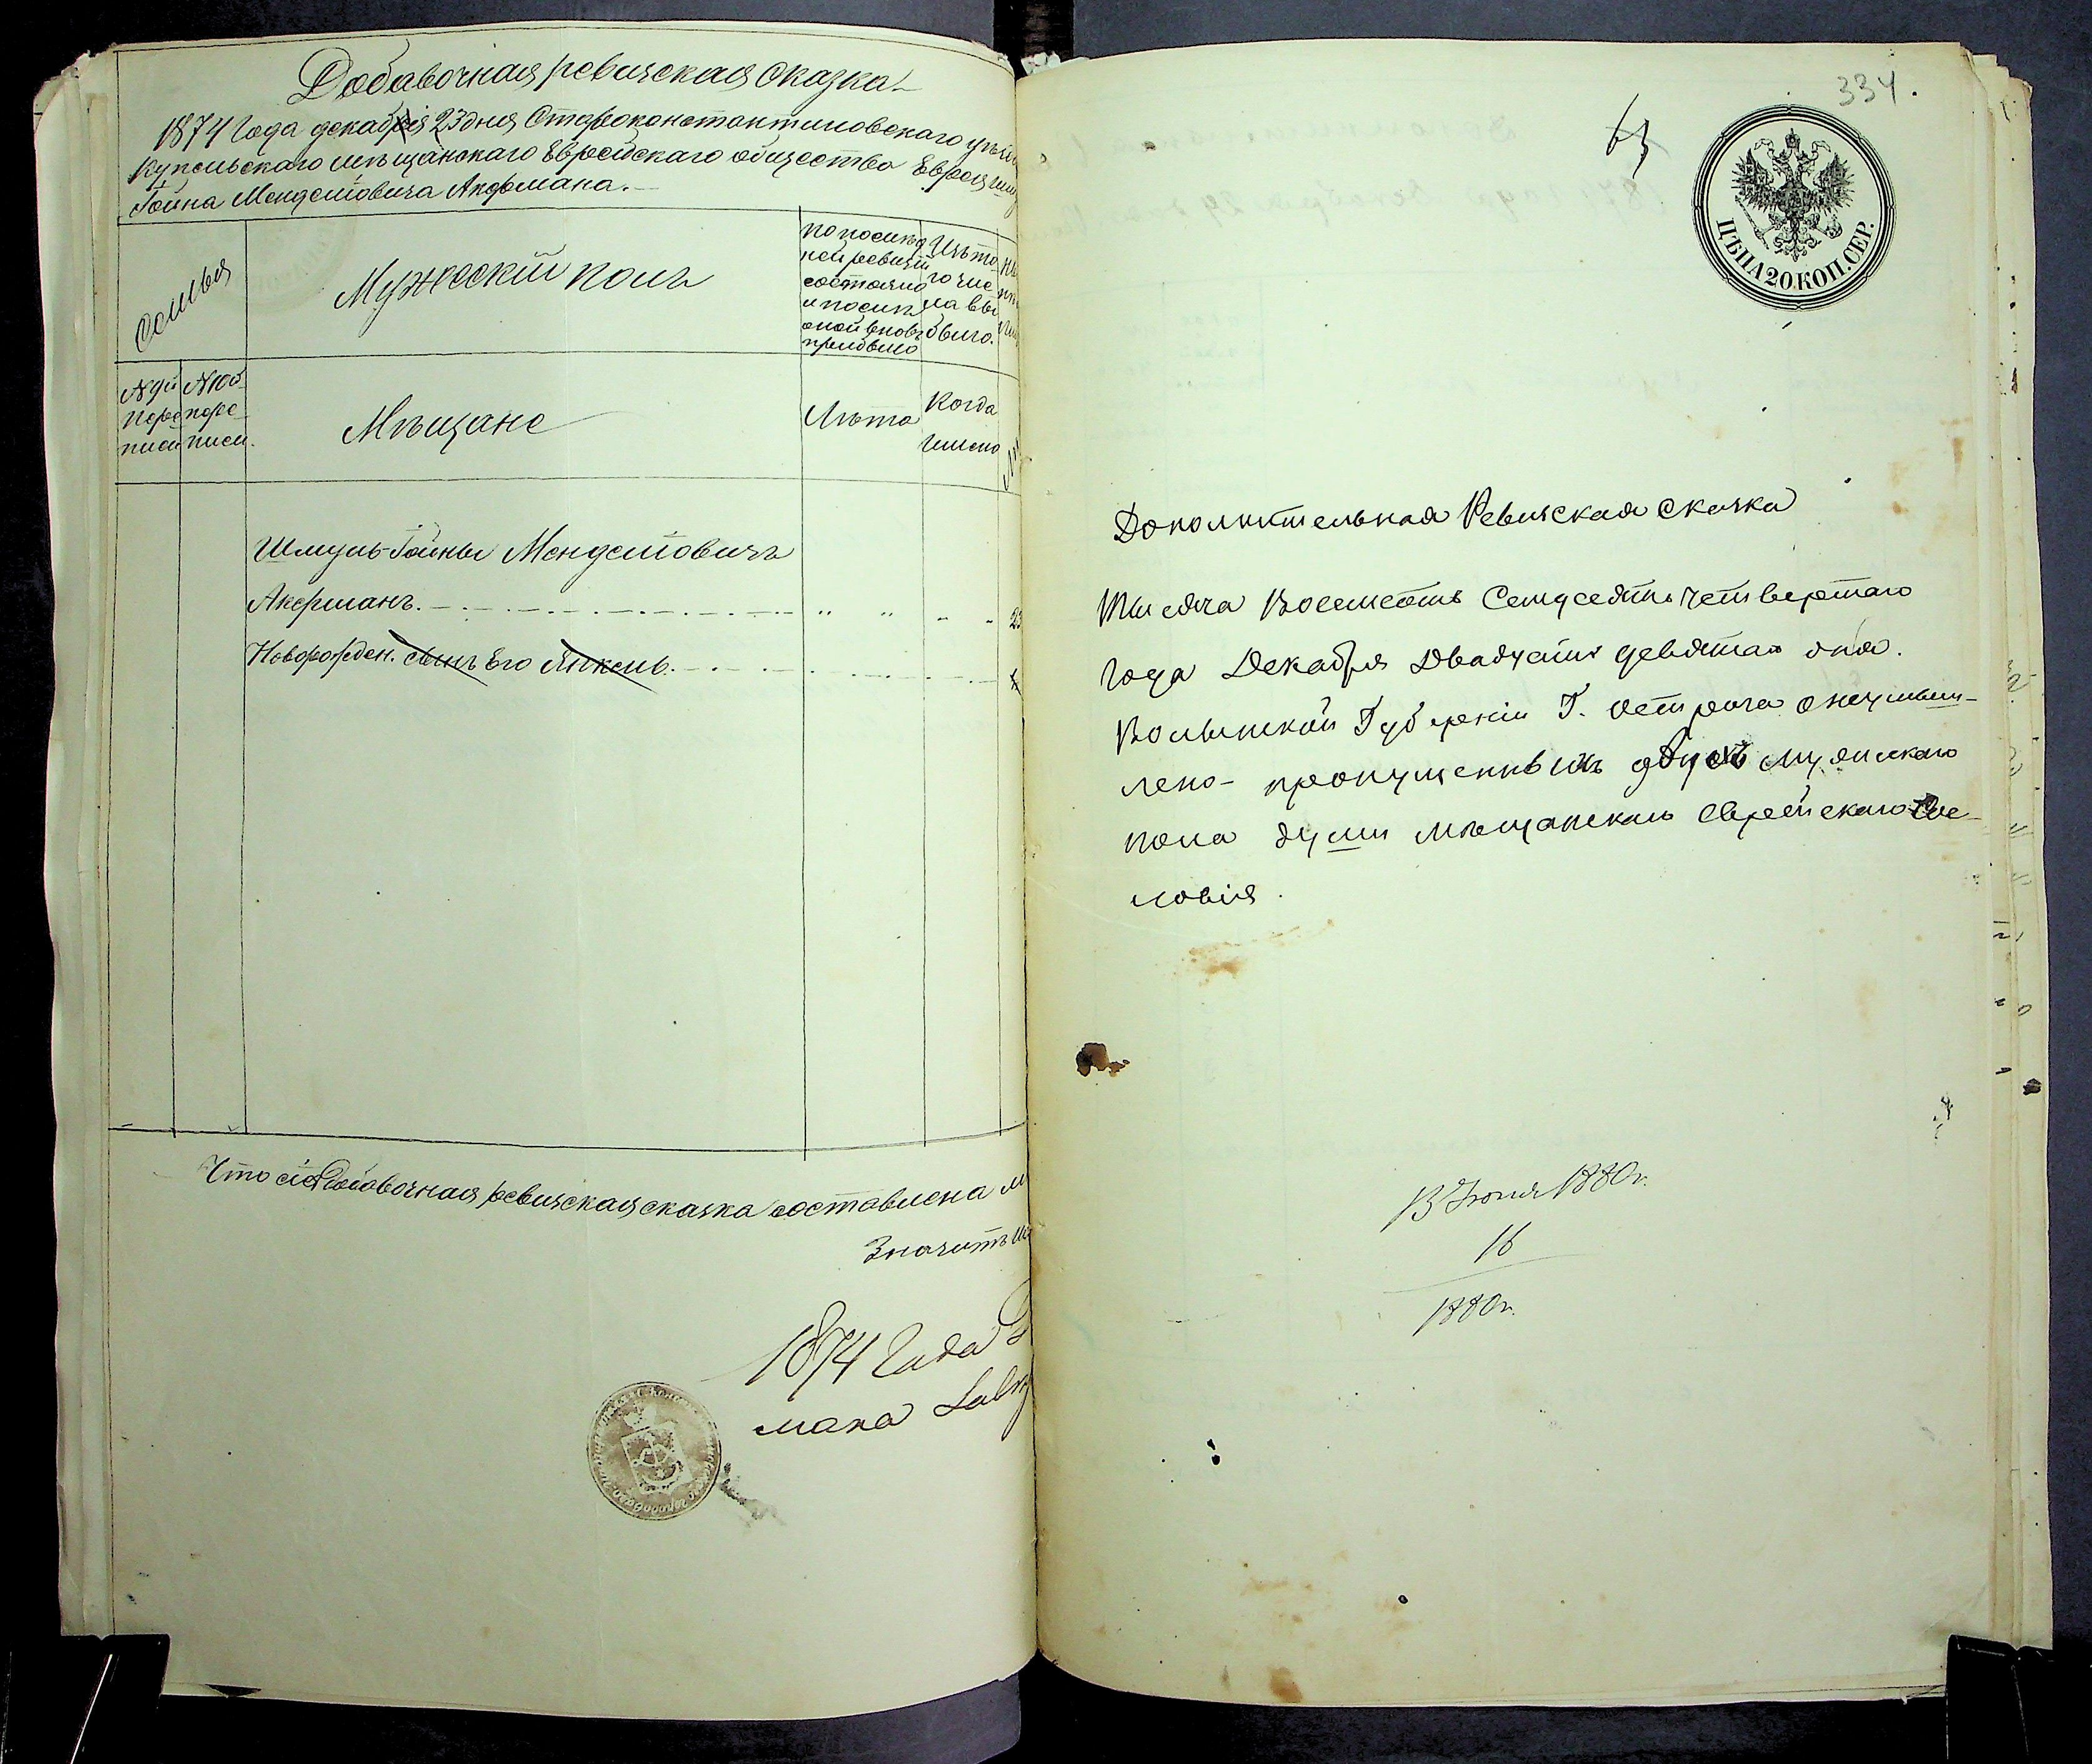 Добавочная ревизская сказка
1874 Года декабря 23 дня Староконстантиновскаго
Купельскаго мѣщанскаго Еврейскаго общества Еврея
Гойна Менделiовича Акермана.
Семья
№ 9й переписи
№ 10й переписи.
Мужескiй полъ
Мѣщане
По послѣдней ревизiи состояло и послѣ оной вновь прибыло
Лѣта
Изъ того числа выбыло.
Когда имено
Шмуль-Гойны Менделiовичъ
Акерманъ.
23
Новорожден. сынъ Его Янкель.
Что сiя добавочная ревизская сказка составлена
Значитъ
1874 Года
мана
334.
ЦѢНА 20.КОП.СЕР.
Дополнительная Ревизская сказка
Тысяча Восемсотъ Семдесятъ четвертаго
Года Декабря Двадцать девятаго дня.
Волынской Губернiи Г. Острога о неумыш-
лено пропущенныхъ двухъ мужескаго
пола души мѣщанскаго Еврейскаго сос-
ловiя.
13 Iюня 1880 г.
16
1880 г.